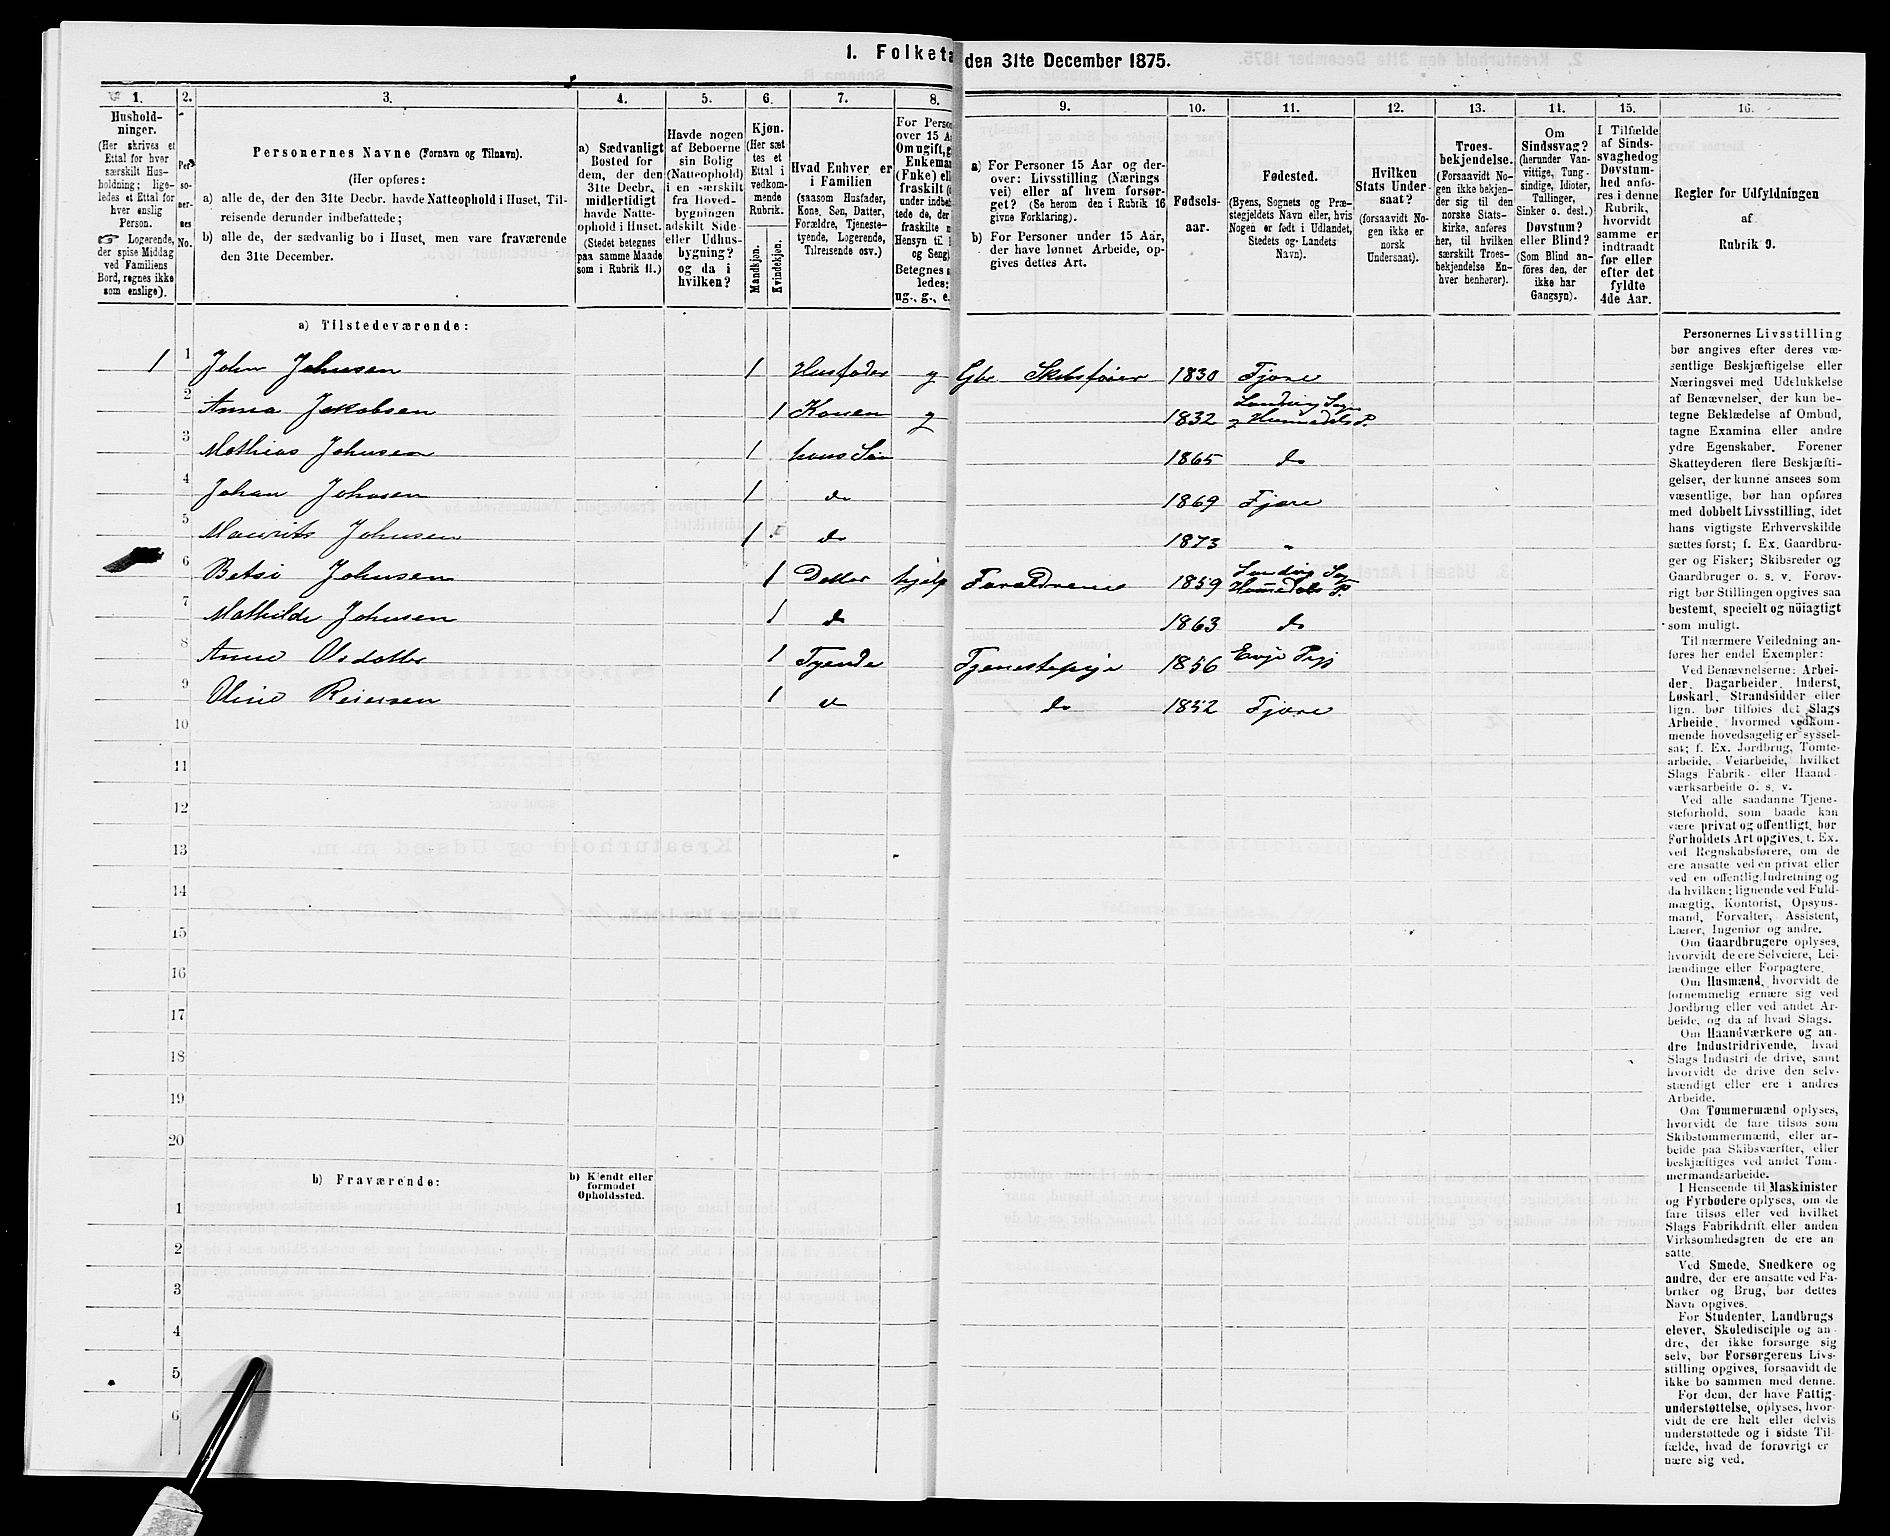 1. Folketa den 31te December 1875.
1. 2. 3. 4. 5. 6. 7. 8. 9. 10. 11. 12. 13. 14. 15. 16.
Hushold-
ninger.
(Her skrives et
Ettal for hver
særskilt Hus-
holdning; lige-
ledes et Ettal for
hver enslig
Person.
☞ Logerende,
der spise Middag
ved Familiens
Bord, regnes ikke
som enslige).
Per-
so-
ner-
nes
No.
Personernes Navne (Fornavn og Tilnavn).
(Her opføres:
a) alle de, der den 31te Decbr. havde Natteophold i Huset, Til-
reisende derunder indbefattede;
b) alle de, der sædvanlig bo i Huset, men vare fraværende
den 31te December.
a) Sædvanligt
Bosted for
dem, der den
31te Decbr.
midlertidigt
havde Natte-
ophold i Huset.
(Stedet betegnes
paa samme Maade
som i Rubrik 11.)
Havde nogen
af Beboerne
sin Bolig
(Natteophold)
i en særskilt
fra Hoved-
bygningen
adskilt Side-
eller Udhus-
bygning?
og da i
hvilken?
Kjøn.
(Her sæt-
tes et
Ettal i
vedkom-
mende
Rubrik.
Mandkjøn.
Kvindekjøn.
Hvad Enhver er
i Familien
(saasom Husfader,
Kone, Søn, Datter,
Forældre, Tjeneste-
tyende, Logerende,
Tilreisende osv.)
For Perso
over 15 A
Om ugift, g
Enkeman
(Enke) ell
fraskilt (
under indbe
tede de, der
fraskilte
Hensyn til
og Seng)
Betegnes s
ledes:
ug., g., e.
a) For Personer 15 Aar og der-
over: Livsstilling (Nærings
vei) eller af hvem forsør-
get? (Se herom den i Rubrik 16
givne Forklaring).
b) For Personer under 15 Aar,
der have lønnet Arbeide, op-
gives dettes Art.
Fødsels-
aar.
Fødested.
(Byens, Sognets og Præ-
stegjeldets Navn eller, hvis
Nogen er født i Udlandet,
Stedets og Landets
Navn).
Hvilken
Stats Under-
saat?
(forsaavidt No-
gen ikke er
norsk
Undersaat).
Troes-
bekjendelse.
(Forsaavidt No-
gen ikke bekjen-
der sig til den
norske Stats-
kirke, anføres
her, til hvilken
særskilt Troes-
bekjendelse En-
hver henhører).
Om
Sindssvag?
(herunder Van-
vittige, Tung-
sindige, Idioter,
Tullinger,
Sinker o. desl.)
Døvstum?
eller Blind?
(Som Blind an-
føres den, der
ikke har
Gangsyn).
I Tilfælde
af Sinds-
svaghed og
Døvstum-
hed anfø-
res i denne
Rubrik,
hvorvidt
samme er
indtraadt
før eller
efter det
fyldte
4de Aar.
Regler for Udfyldningen
af
Rubrik 9.
a) Tilstedeværende:
1 1 John Johnsen 1 Husfader g Gbr Skibsfører 1830 Fjære
2 Anna Jakobsen 1 Konen g 1832 Landvig Sogn
Hommedals P.
3 Mathias Johnsen 1 hans Søn 1865 do
4 Johan Johnsen 1 do 1869 Fjære
5 Mauritz Johnsen 1 do 1873 "
6 Betsi Johnsen 1 Datter hjelp Foræeldrene 1859 Landvig Sogn
Hommedals P.
7 Mathilde Johnsen 1 do 1863 do
8 Anne Olsdatter 1 Tyende Tjenestepige 1856 Evje Pgj
9 Oline Reiersen 1 do do 1852 Fjære
10
11
12
13
14
15
16
17
18
19
20
b) Fraværende:
b) Kjendt eller
formodet
Opholdssted.
1
2
3
4
5
6
Personernes Livsstilling
bør angives efter deres væ-
sentlige Beskjæftigelse eller
Næringsvei med Udelukkelse
af Benævnelser, der kun be-
tegne Beklædelse af Ombud,
tagne Examina eller andre
ydre Egenskaber. Forener
Skatteyderen flere Beskjæfti-
gelser, der kunne ansees som
væsentlige, bør han opføres
med dobbelt Livsstilling, idet
hans vigtigste Erhvervskilde
sættes først; f. Ex. Gaardbru-
ger og Fisker; Skibsreder og
Gaardbruger o. s. v. Forøv-
rigt bør Stillingen opgives saa
bestemt, specielt og nöiagtigt
som muligt.
Til nærmere Veiledning an-
føres her endel Exempler:
Ved Benævnelserne: Arbei-
der, Dagarbeider, Inderst,
Løskarl, Strandsidder eller
lign. bør tilføies det Slags
Arbeide, hvormed vedkom-
mende hovedsagelig er syssel-
sat; f. Ex. Jordbrug, Tomte-
arbeide, Veiarbeide, hvilket
Slags Fabrik- eller Haand-
værksarbeide o. s. v.
Ved alle saadanne Tjene-
steforhold, som baade kan
være privat og offentligt, bør
Forholdets Art opgives, t. Ex.
ved Regnskabsførere, om de
ere ansatte ved en privat eller
ved en offentlig Indretning og
da hvilken; lignende ved Fuld-
mægtig, Kontorist, Opsyns-
mand, Forvalter, Assistent,
Lærer, Ingeniør og andre.
Om Gaardbrugere oplyses,
hvorvidt de ere Selveiere, Lei-
lændinge eller Forpagtere.
Om Husmænd, hvorvidt de
fornemmelig ernære sig ved
Jordbrug eller ved andet Ar-
beide, og da af hvad Slags.
Om Haandværkere og an-
dre Industridrivende, hvad
Slags Industri de drive, samt
hvorvidt de drive den selv-
stændigt eller ere i andres
Arbeide.
Om Tømmermænd oplyses,
hvorvidt de fare tilsøs som
Skibstømmermænd, eller ar-
beide paa Skibsværfter, eller
beskjæftiges ved andet Tøm-
mermandsarbeide.
I Henseende til Maskinister
og Fyrbødere oplyses, om de
fare tilsøs eller ved hvilket
Slags Fabrikdrift eller anden
Virksomhedsgren de ere an-
satte.
Ved Smede, Snedkere og
andre, der ere ansatte ved Fa-
briker og Brug, bør dettes
Navn opgives.
For Studenter, Landbrugs-
elever, Skoledisciple og an-
dre, der ikke forsørge sig
selv, bør Forsørgerens Livs-
stilling opgives, forsaavidt de
ikke bo sammen med denne.
For dem, der have Fattig-
understøttelse, oplyses, hvor-
vidt de ere helt eller delvis
understøttede og i sidste Til-
fælde, hvad de forøvrigt er-
nære sig ved.